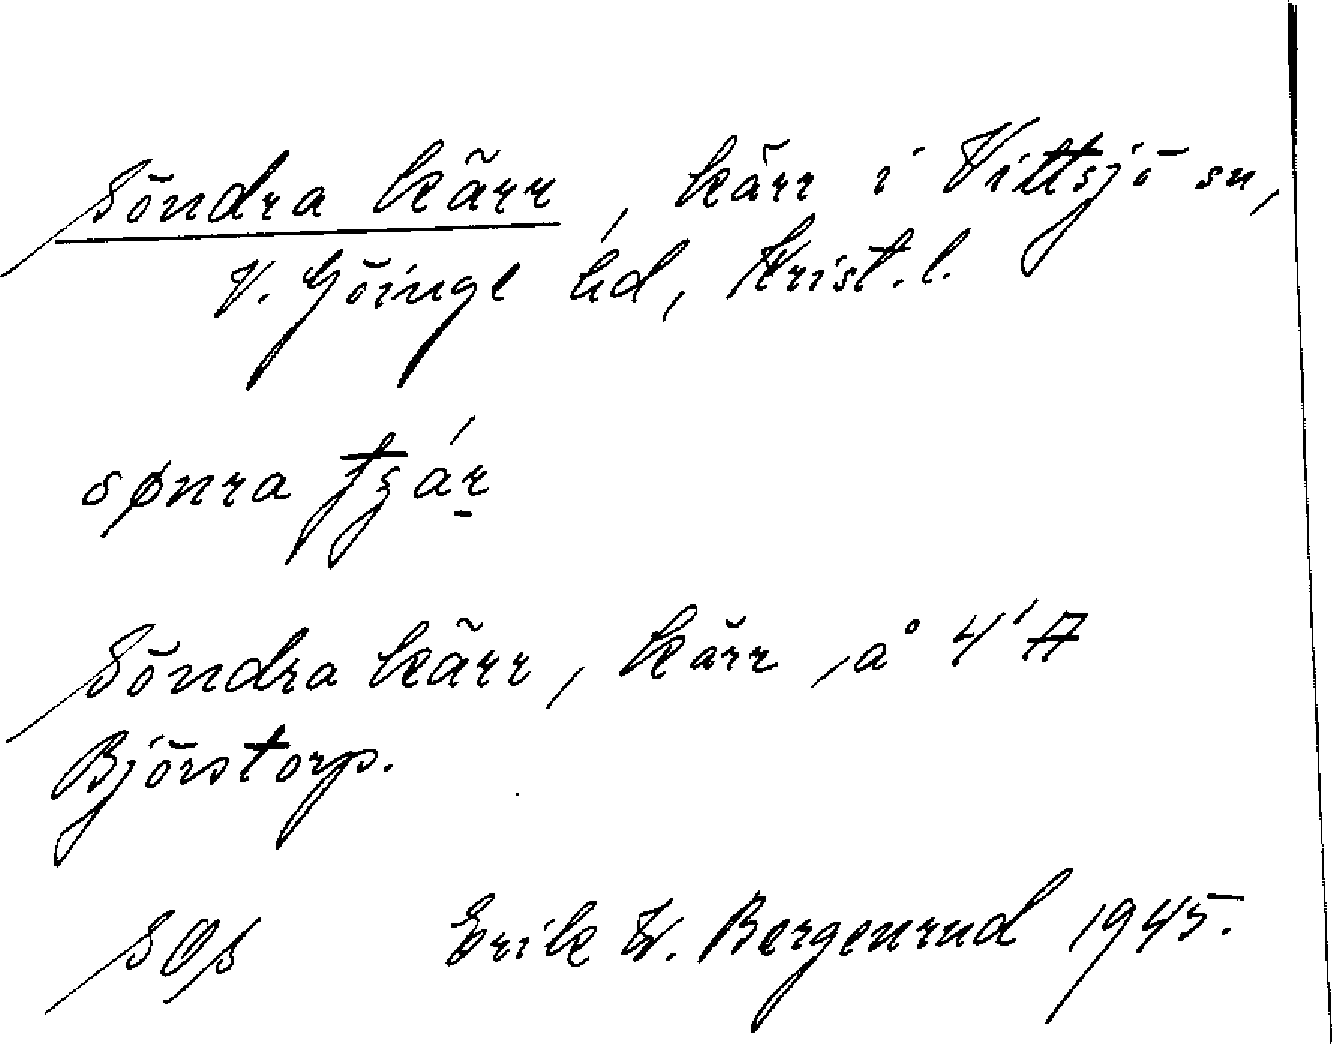 Söndra kärr, kärr i Vittsjö sn,
V. Göinge hd, Krist. l.
sønra
Söndra kärr, kärr, å 4'A
Björstorp.
Erik W. Bergenrud 1945.